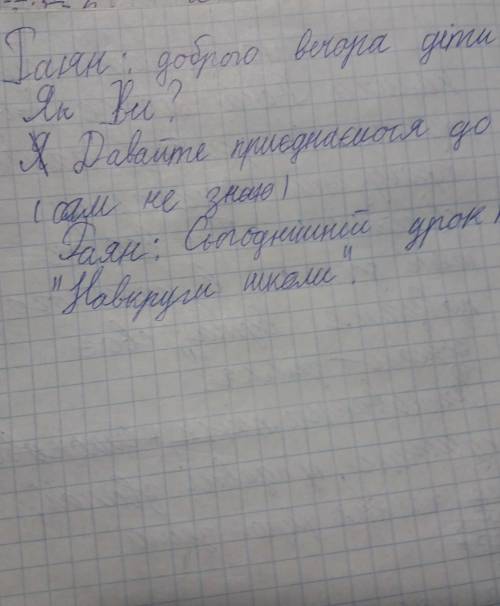 Раян: доброго вечора діти
Як Ви?
Давайте приєднаємося до
(сам не знаю)
Раян: Сьогоднішній урок
"Навкруги школи".